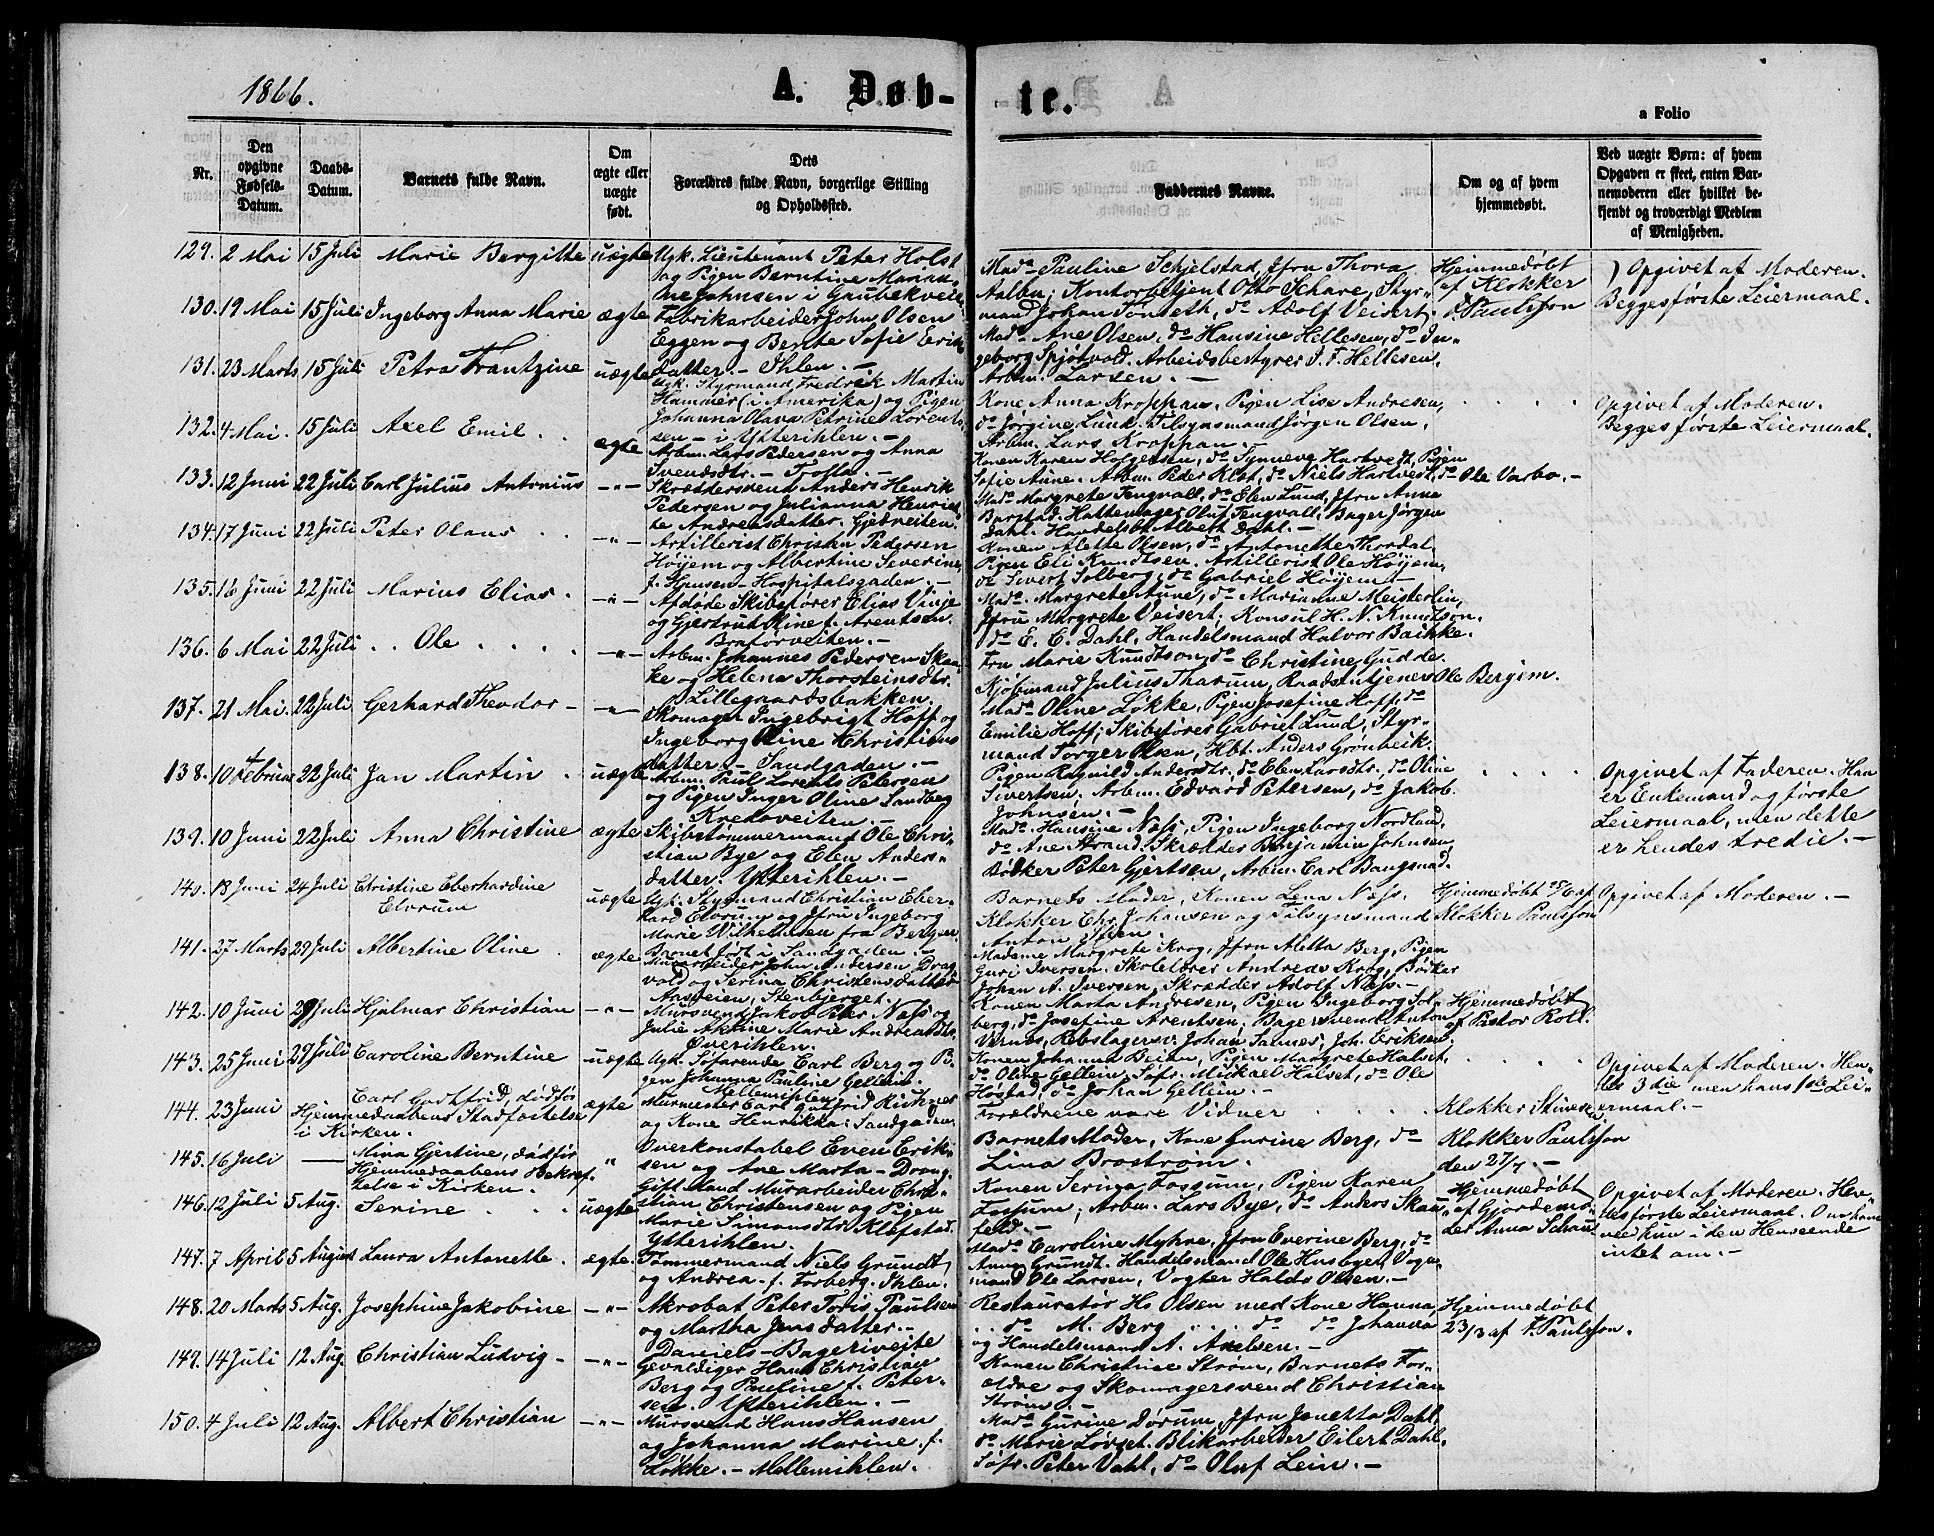 1866.
A. Døb-
te.
a Folio
Nr.
Den opgivne Fødsels-Datum.
Daabs-Datum.
Barnets fulde Navn.
Om ægte eller uægte født.
Dets Forældres fulde Navn, borgerlige Stilling og Opholdssted.
Faddernes Navne.
Om og af hvem hjemmedøbt.
Ved uægte Børn: af hvem Opgaven er skeet, enten Barnemoderen eller hvilket bekjendt og troværdigt Medlem af Menigheden.
129. 2 Mai 15 Juli Marie Bergitte uægte
Ugk. Lieutenant Peter Holst
og Pigen Berntine Marian-
ne Johnsen i Gaubekveiten
Mad. Pauline Schjelstad, Jfru Thora
Aalbu; Kontorbetjent Otto Schare, Styr-
mand Johan Tondeth, do Adolf Veisert.
Hjemmedøbt
af Klokker
Paulsson
) Opgivet af Moderen.
Begges første Leiermaal.
130. 19 Mai 15 Juli Ingeborg Anna Marie ægte
Fabrikarbeider John Olsen
Eggen og Bente Sofie Eriks
datter. - Ihlen. -
Mad. Ane Olsen, do Hansine Hellesen, do In-
geborg Spjøtvold. Arbeidsbestyrer J. F. Hellesen.
Arbm. Larsen. -
131. 23 Marts 15 Juli Petra Frantzine uægte
Ugk. Styrmand Fredrik Martin
Hammer (i Amerika) og Pigen
Johanna Olava Petrine Lorent-
sen - i Ytterihlen. -
Kone Anna Kroppan. Pigen Lise Andresen,
do Jørgine Lund. Tilsynsmand Jørgen Olsen,
Arbm. Lars Kroppan. -
Opgivet af Moderen.
Begges første Leiermaal.
132. 4 Mai. 15 Juli Axel Emil. ægte
Arbm. Lars Pedersen og Anna
Svendsdtr. - Trolla. -
Konen Karen Holgersen, do Synneva Hartvedt, Pigen
Sofie Aune. Arbm. Peder Klet, do Niels Hartvedt, do Ole Varbo. -
133. 12 Juni 22 Juli Carl Julius Antonius -"-
Skræddersvend Anders Henrik
Pedersen og Julianna Henriet-
te Andreasdatter. Gjetveiten.
Mad. Margrete Tengvall, do Elen Lund, Jfru Anna
Barstad. Hattemager Oluf Tengvall, Bager Jørgen
Dahl. Handelsbt Albert Dahl. -
134. 17 Juni 22 Juli Peter Olaus -"-
Artillerist Christen Pedersen
Höyem og Albertine Severine
f. Hansen - Hospitalsgaden. -
Konen Alette Olsen, do Antonette Thordal.
Pigen Eli Knudtsen. Artillerist Ole Höyem,
do Sivert Solberg, do Gabriel Höyem. -
135. 16 Juni 22 Juli Marius Elias. -"-
Afdøde Skibsfører Elias Vinje
og Gjertrud Oline f. Arentsen.
Bratørveiten. -
Mad. Margrete Aune, do Marianne Meisterlin,
Jfru Margrete Veisert; Konsul H. N. Knudtson.
do E. C. Dahl. Handelsmand Halvor Bathke.
136. 6 Mai 22 Juli Ole -"-
Arbm. Johannes Pedersen Skaa-
ke og Helena Thorsteinsdtr.
Lillegaardsbakken.
Fru Marie Knudtson, do Christine Gudde.
Kjøbmand Julius Tharum, Raadstutjener Ole Bergem.
137. 21 Mai. 22 Juli Gerhard Theodor -"-
Skomager Ingebrigt Hoff og
Ingeborg Oline Christians
datter. - Sandgaden. -
Mad. Oline Løkke, Pigen Josefine Hoff, do
Emilie Hoff; Skibsfører Gabriel Lund, Styr-
mand Törger Olsen, Hbt. Anders Grønbeik.
138. 10 Februar 22 Juli Jan Martin uægte
Arbm. Paul Lorents Petersen
og Pigen Inger Oline Sandberg
Kredoveiten. -
Pigen Ragnild Andersdtr., do Elen Larsdtr., do Oline
Sivertsen; Arbm. Edvard Petersen, do Jakob.
Johnsen. -
Opgivet af Faderen. Han
er Enkemand og første
Leiermaal, men dette
er hendes tredie. -
139. 10 Juni 22 Juli Anna Christine ægte
Skibstømmermand Ole Chri-
stian Bye og Elen Anders-
datter. Ytterihlen. -
Mad. Hansine Næss, Pigen Ingeborg Nordland,
do Ane Strand. Skrædder Benjamin Johnsen,
Bødker Peter Gjertsen, Arbm. Carl Baugsnad.
140. 18 Juni 24 Juli Christine Eberhardine
Elvrum uægte
Ugk. Styrmand Christian Eber-
hard Elvrum og Jfru Ingeborg
Marie Wilhelmsen fra Bergen.
Barnet født i Sandgaden. -
Barnets Moder, Konen Lena Næss.
Klokker Chr. Johansen og Tilsynsmand
Anton Iffen.
Hjemmedøbt af
Klokker Paulsson
Opgivet af Moderen. -
141. 27 Marts 29 Juli Albertine Oline ægte
Murarbeider John Andersen Drag-
vold og Serina Christensdatter
Aasveien, Stenbjerget.
Madame Margrete Krog, Jfru Aletta Berg, Pigen
Guri Iversen. Skolelærer Andreas Krog, Bødker
Johan A. Iversen. Skrædder Adolf Næss. -
142. 10 Juni 29 Juli Hjalmar Christian -"-
Mursvend Jakob Peter Næss og
Julie Aktine Marie Andreasdtr.
Øverihlen.
Konen Marta Andresen, Pigen Ingeborg Sol-
berg, do Josefine Arentsen; Bagersvend Anton
Vernes, Rebslagersv. Johan Salnes, Joh. Eriksen.
Hjemmedøbt
af Pastor Roll.
143. 25 Juni 29 Juli Caroline Berntine uægte
Ugk. Søfarende Carl Berg og Pi-
gen Johanna Pauline Gellein.
Mellemihlen.
Konen Johanna Beian, Pigen Margrete Halset,
do Oline Gellein, Søfr. Mickael Halset, do Ole
Høstad, do Johan Gellein. -
Opgivet af Moderen. Hen-
des 3die men hans 1ste Lei-
ermaal. -
144. 23 Juni Carl Gottfrid, dødfør
Hjemmedaabens Stadfæstelse
i Kirken. ægte
Murmester Carl Gotfrid Richter
og Kone Henrikka. Sandgaden.
Forældrene vare Vidner
Klokker Skivesen
145. 16 Juli — Mina Gjertine, død før
Hjemmedaabens Bekræf-
telse i Kirken. "
Overkonstabel Even Erik-
sen og Ane Marta - Drag.
Barnets Moder, Kone Gurine Berg, do
Lina Brostrøm.
Klokker Paulsson
den 27/7. -
146. 12 Juli 5 Aug. Serine uægte
Gift Mand Murarbeider Chri-
stian Christensen og Pigen
Marie Simonsdtr. Kløfstad.
Ytterihlen.
Konen Serina Fossum, Pigen Karen
Fossum; Arbm. Lars Bye, do Anders Skau-
feld. -
Hjemmedøbt
af Gjordemo-
der Anna Schau
Opgivet af Moderen. Hen-
des første Leiermaal. Om ham
veed hun i den Henseende
intet om. -
147. 7 April 5 August Laura Antonette. ægte.
Tømmermand Niels Grundt
og Andrea f. Forberg. Ihlen.
Mad. Caroline Myhre, Jfru Everine Berg, do
Anna Grundt. Handelsmand Ole Husbye, Vogn-
mand Ole Larsen, Vogter Haldo Olsen. -
148. 20 Marts 5 Aug. Josephine Jakobine -"-
Akrobat Peter Toris Paulsen
og Martha Jensdatter. -
Daniels-Bageriveite
Restauratør Hs Olsen med Kone Hanna,
do M. Berg do do Johanna
og Handelsmand A. Axelsen. -
Hjemmedøbt
23/3 af F. Paulsson.
149. 14 Juli 12 Aug. Christian Ludvig - -"-
Gevaldiger Hans Christian
Berg og Pauline f. Peter-
sen. Ytterihlen. -
Konen Christine Strøm, Barnets For-
ældre og Skomagersvend Christian
Strøm. -
150. 4 Juli 12 Aug. Albert Christian -"-
Mursvend Hans Hansen
og Johanna Marine f.
Løkke. - Mellemihlen.
Mad. Gurine Dørum, Jfru Janetta Dahl,
do Marie Lørset. Blikarbeider Eilert Dahl.
Søfr. Peter Vahl, do Oluf Lein. -